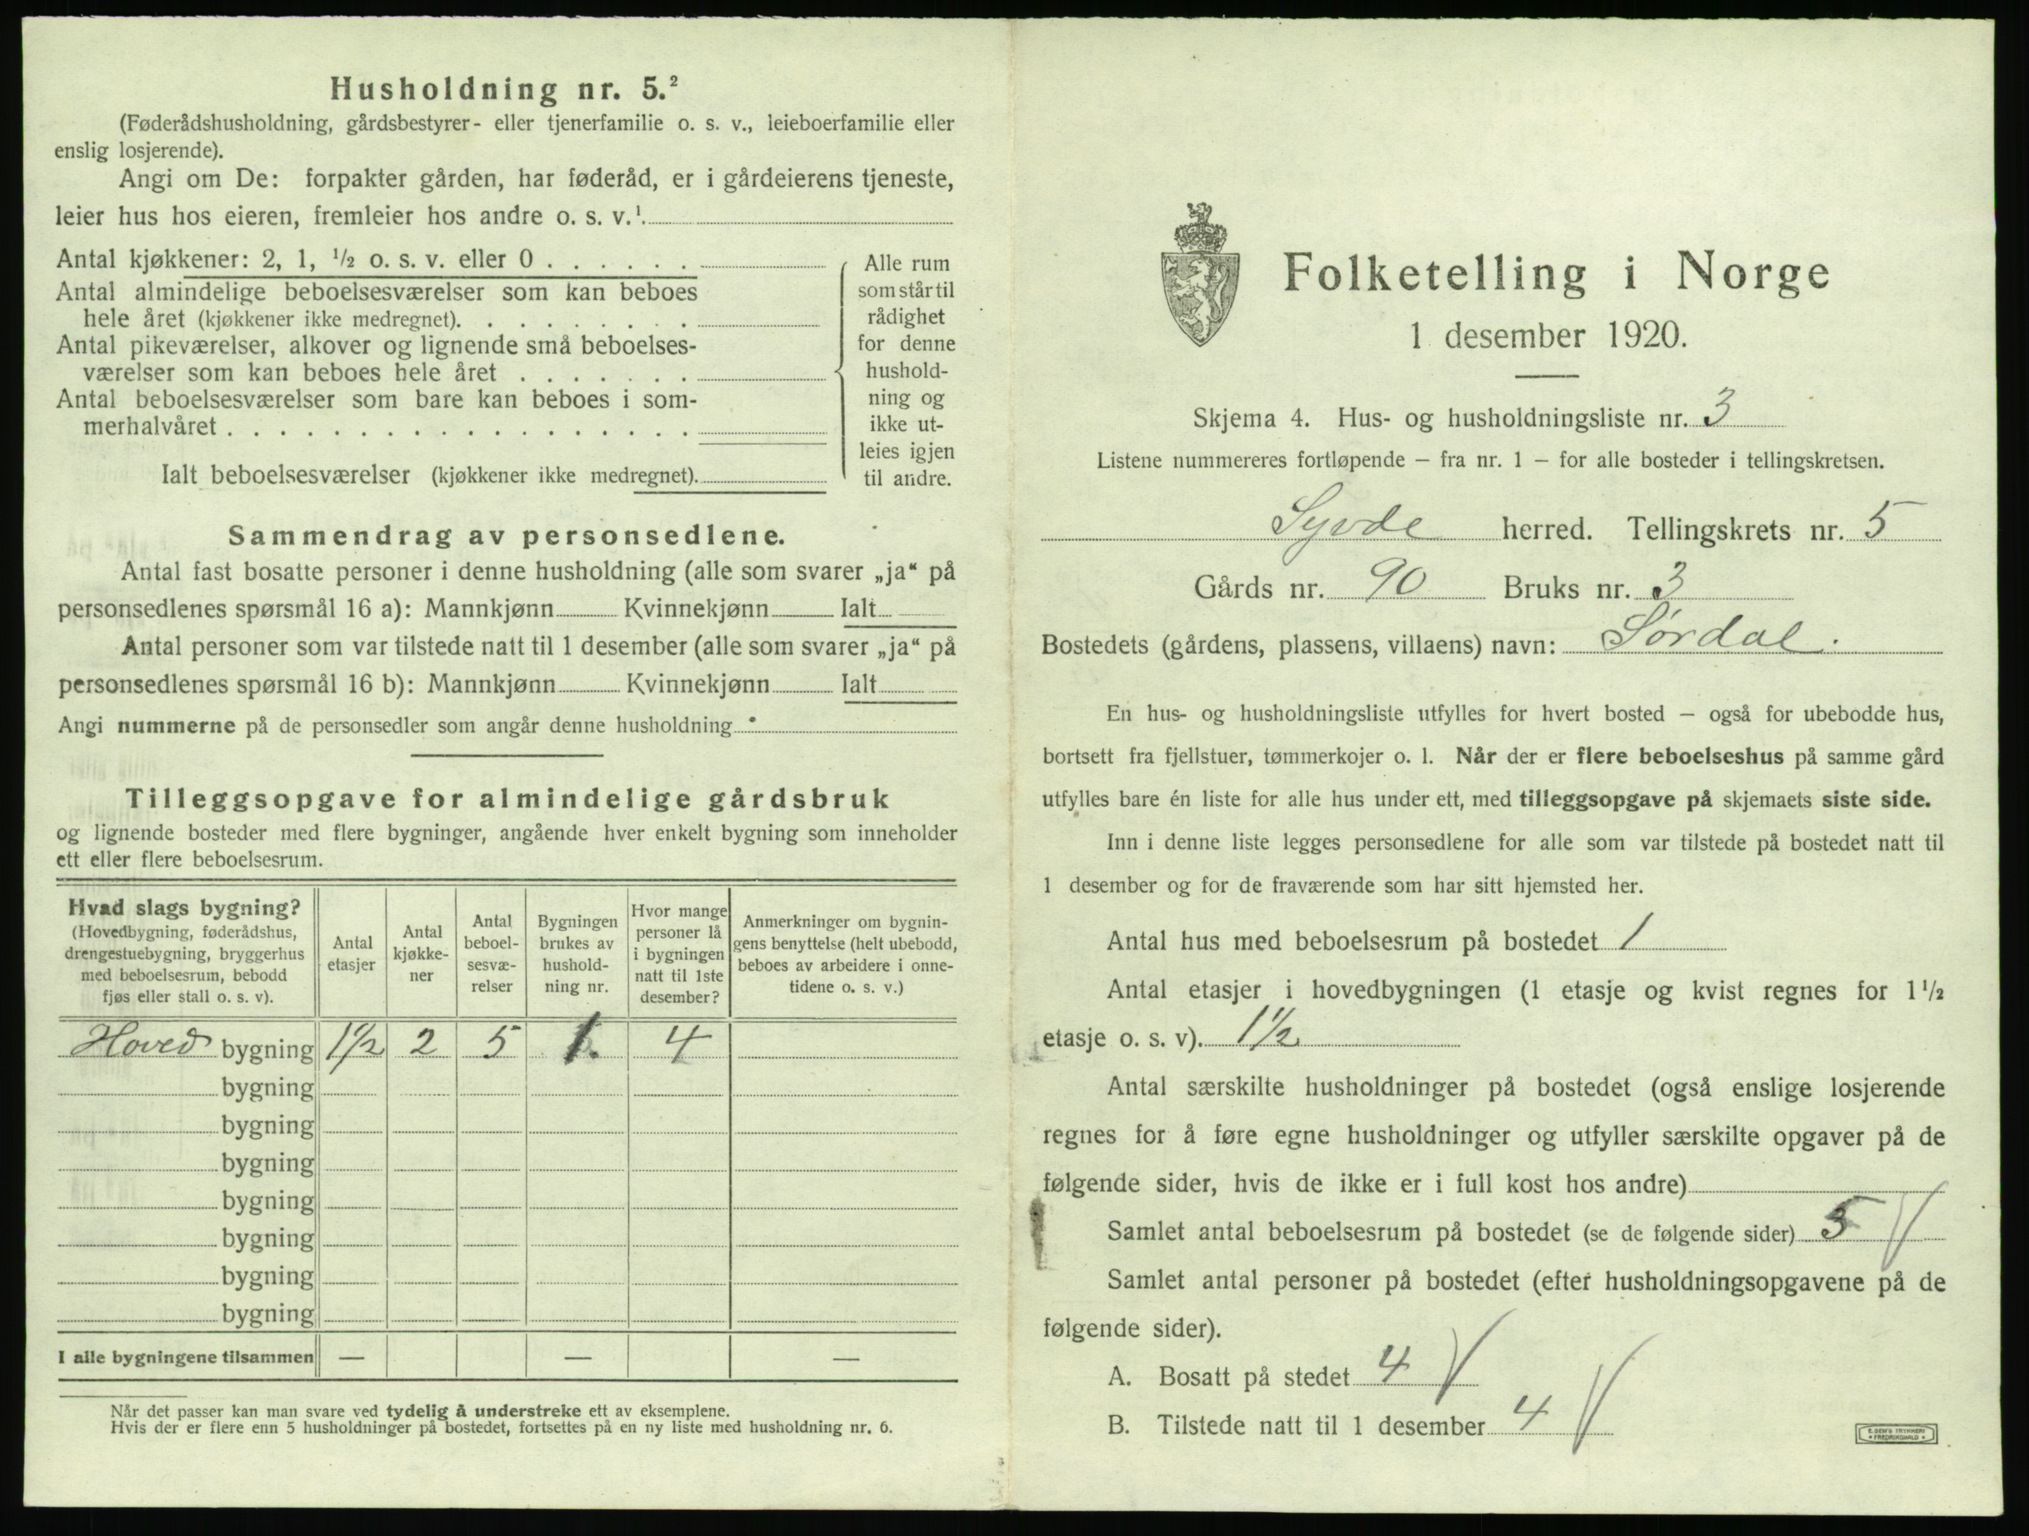 Husholdning nr. 5.²
(Føderådshusholdning, gårdsbestyrer- eller tjenerfamilie o. s. v., leieboerfamilie eller
enslig losjerende).
Angi om De: forpakter gården, har føderåd, er i gårdeierens tjeneste,
leier hus hos eieren, fremleier hos andre o. s. v.¹
Antal kjøkkener: 2, 1, ½ o. s. v. eller 0 . . . . . .
Antal almindelige beboelsesværelser som kan beboes
hele året (kjøkkener ikke medregnet). . . . . . . . .
Antal pikeværelser, alkover og lignende små beboelses-
værelser som kan beboes hele året . . . . . . .
Antal beboelsesværelser som bare kan beboes i som-
merhalvåret . . . . . . . . . . . . . . . . . .
Ialt beboelsesværelser (kjøkkener ikke medregnet).
Alle rum
som står til
rådighet
for denne
hushold-
ning og
ikke ut-
leies igjen
til andre.
Sammendrag av personsedlene.
Antal fast bosatte personer i denne husholdning (alle som svarer „ja“ på
personsedlenes spørsmål 16 a): Mannkjønn Kvinnekjønn Ialt
Antal personer som var tilstede natt til 1 desember (alle som svarer „ja“ på
personsedlenes spørsmål 16 b): Mannkjønn Kvinnekjønn Ialt
Angi nummerne på de personsedler som angår denne husholdning
Tilleggsopgave for almindelige gårdsbruk
og lignende bosteder med flere bygninger, angående hver enkelt bygning som inneholder
ett eller flere beboelsesrum.
Hvad slags bygning?
(Hovedbygning, føderådshus,
drengestuebygning, bryggerhus
med beboelsesrum, bebodd
fjøs eller stall o. s. v).
Antal
etasjer
Antal
kjøkke-
ner
Antal
beboel-
sesvæ-
relser
Bygningen
brukes av
hushold-
ning nr.
Hvor mange
personer lå
i bygningen
natt til 1ste
desember?
Anmerkninger om bygnin-
gens benyttelse (helt ubebodd,
beboes av arbeidere i onne-
tidene o. s. v.)
Hoved bygning 1½ 2 5 1. 4
bygning
bygning
bygning
bygning
bygning
bygning
bygning
I alle bygningene tilsammen — — —
Når det passer kan man svare ved tydelig å understreke ett av eksemplene.
Hvis der er flere enn 5 husholdninger på bostedet, fortsettes på en ny liste med husholdning nr. 6.
Folketelling i Norge
1 desember 1920.
Skjema 4. Hus- og husholdningsliste nr. 3
Listene nummereres fortløpende – fra nr. 1 – for alle bosteder i tellingskretsen.
Syvde herred. Tellingskrets nr. 5
Gårds nr. 90 Bruks nr. 3
Bostedets (gårdens, plassens, villaens) navn: Sørdal.
En hus- og husholdningsliste utfylles for hvert bosted – også for ubebodde hus,
bortsett fra fjellstuer, tømmerkojer o. l. Når der er flere beboelseshus på samme gård
utfylles bare én liste for alle hus under ett, med tilleggsopgave på skjemaets siste side.
Inn i denne liste legges personsedlene for alle som var tilstede på bostedet natt til
1 desember og for de fraværende som har sitt hjemsted her.
Antal hus med beboelsesrum på bostedet 1
Antal etasjer i hovedbygningen (1 etasje og kvist regnes for 1½
etasje o. s. v). 1½
Antal særskilte husholdninger på bostedet (også enslige losjerende
regnes for å føre egne husholdninger og utfyller særskilte opgaver på de
følgende sider, hvis de ikke er i full kost hos andre)
Samlet antal beboelsesrum på bostedet (se de følgende sider) 5
Samlet antal personer på bostedet (efter husholdningsopgavene på de
følgende sider).
A. Bosatt på stedet 4
B. Tilstede natt til 1 desember 4
E. SEM'S TRYKKERI
FREDRIKSHALD